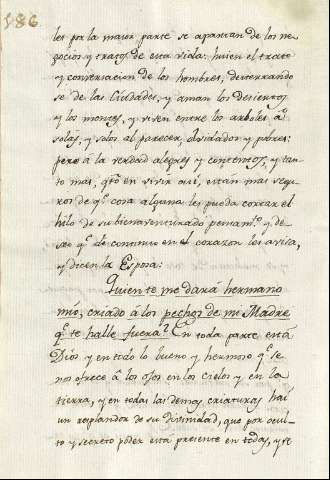 186
les por la maior parte se apartan de los ne
gocios y tratos de esta vida: huien el trato
y conversacion de los hombres, desterrando
se de las Ciudades, y aman los desiertos
y los montes, y viven entre los arboles à
solas, y solos al parecer, olvidados y pobres:
pero à la verdad alegres y contentos, y tan
to mas, qto en vivir assi, están mas segu
ros de qe cosa alguna les pueda cortar el
hilo de su bienaventurado pensamto, y de
seo qe de continuo en el corazon les avisa,
y dicen la Esposa:
Quien te me dará hermano
mio, criado à los pechos de mi Madre
qe te halle fuera? En toda parte está
Dios y en todo lo bueno y hermoso qe se
nos ofrece à los ojos en los cielos y en la
tierra, y en todas las demas criaturas hai
un resplandor de su divinidad, que por ocul
to y secreto poder está presente en todas, y se